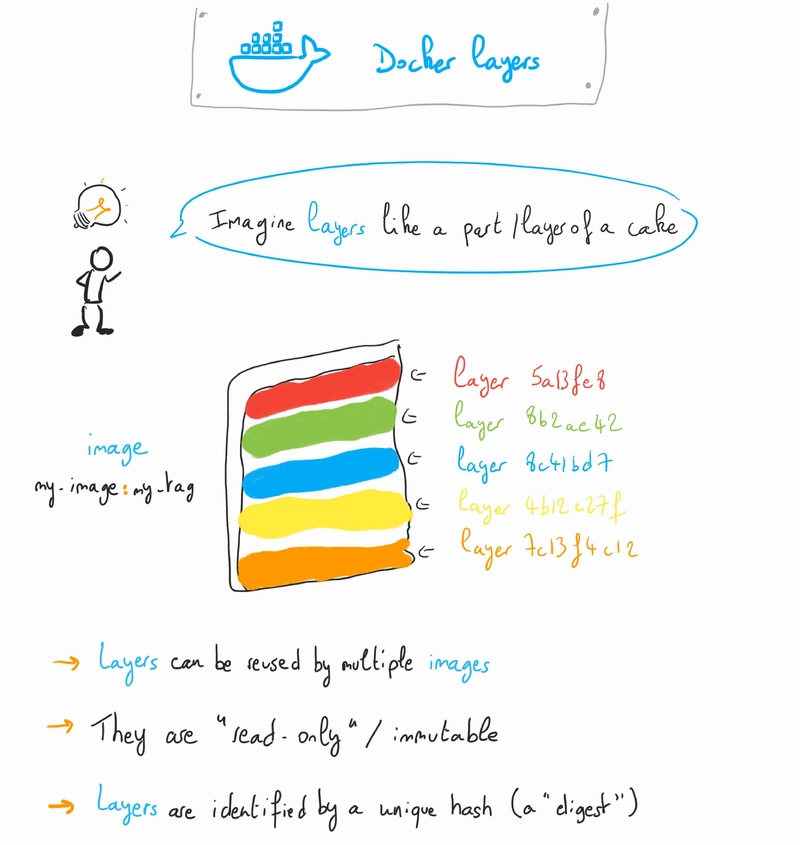 Docker layers
Imagine layers like a part/layer of a cake
layer 5a13fe8
layer 8b2ae42
layer 8c41bd7
layer 4b12c27f
layer 7c13f4c12
image
my-image:my-tag
→ Layers can be reused by multiple images
→ They are "read-only" / immutable
→ Layers are identified by a unique hash (a "digest")